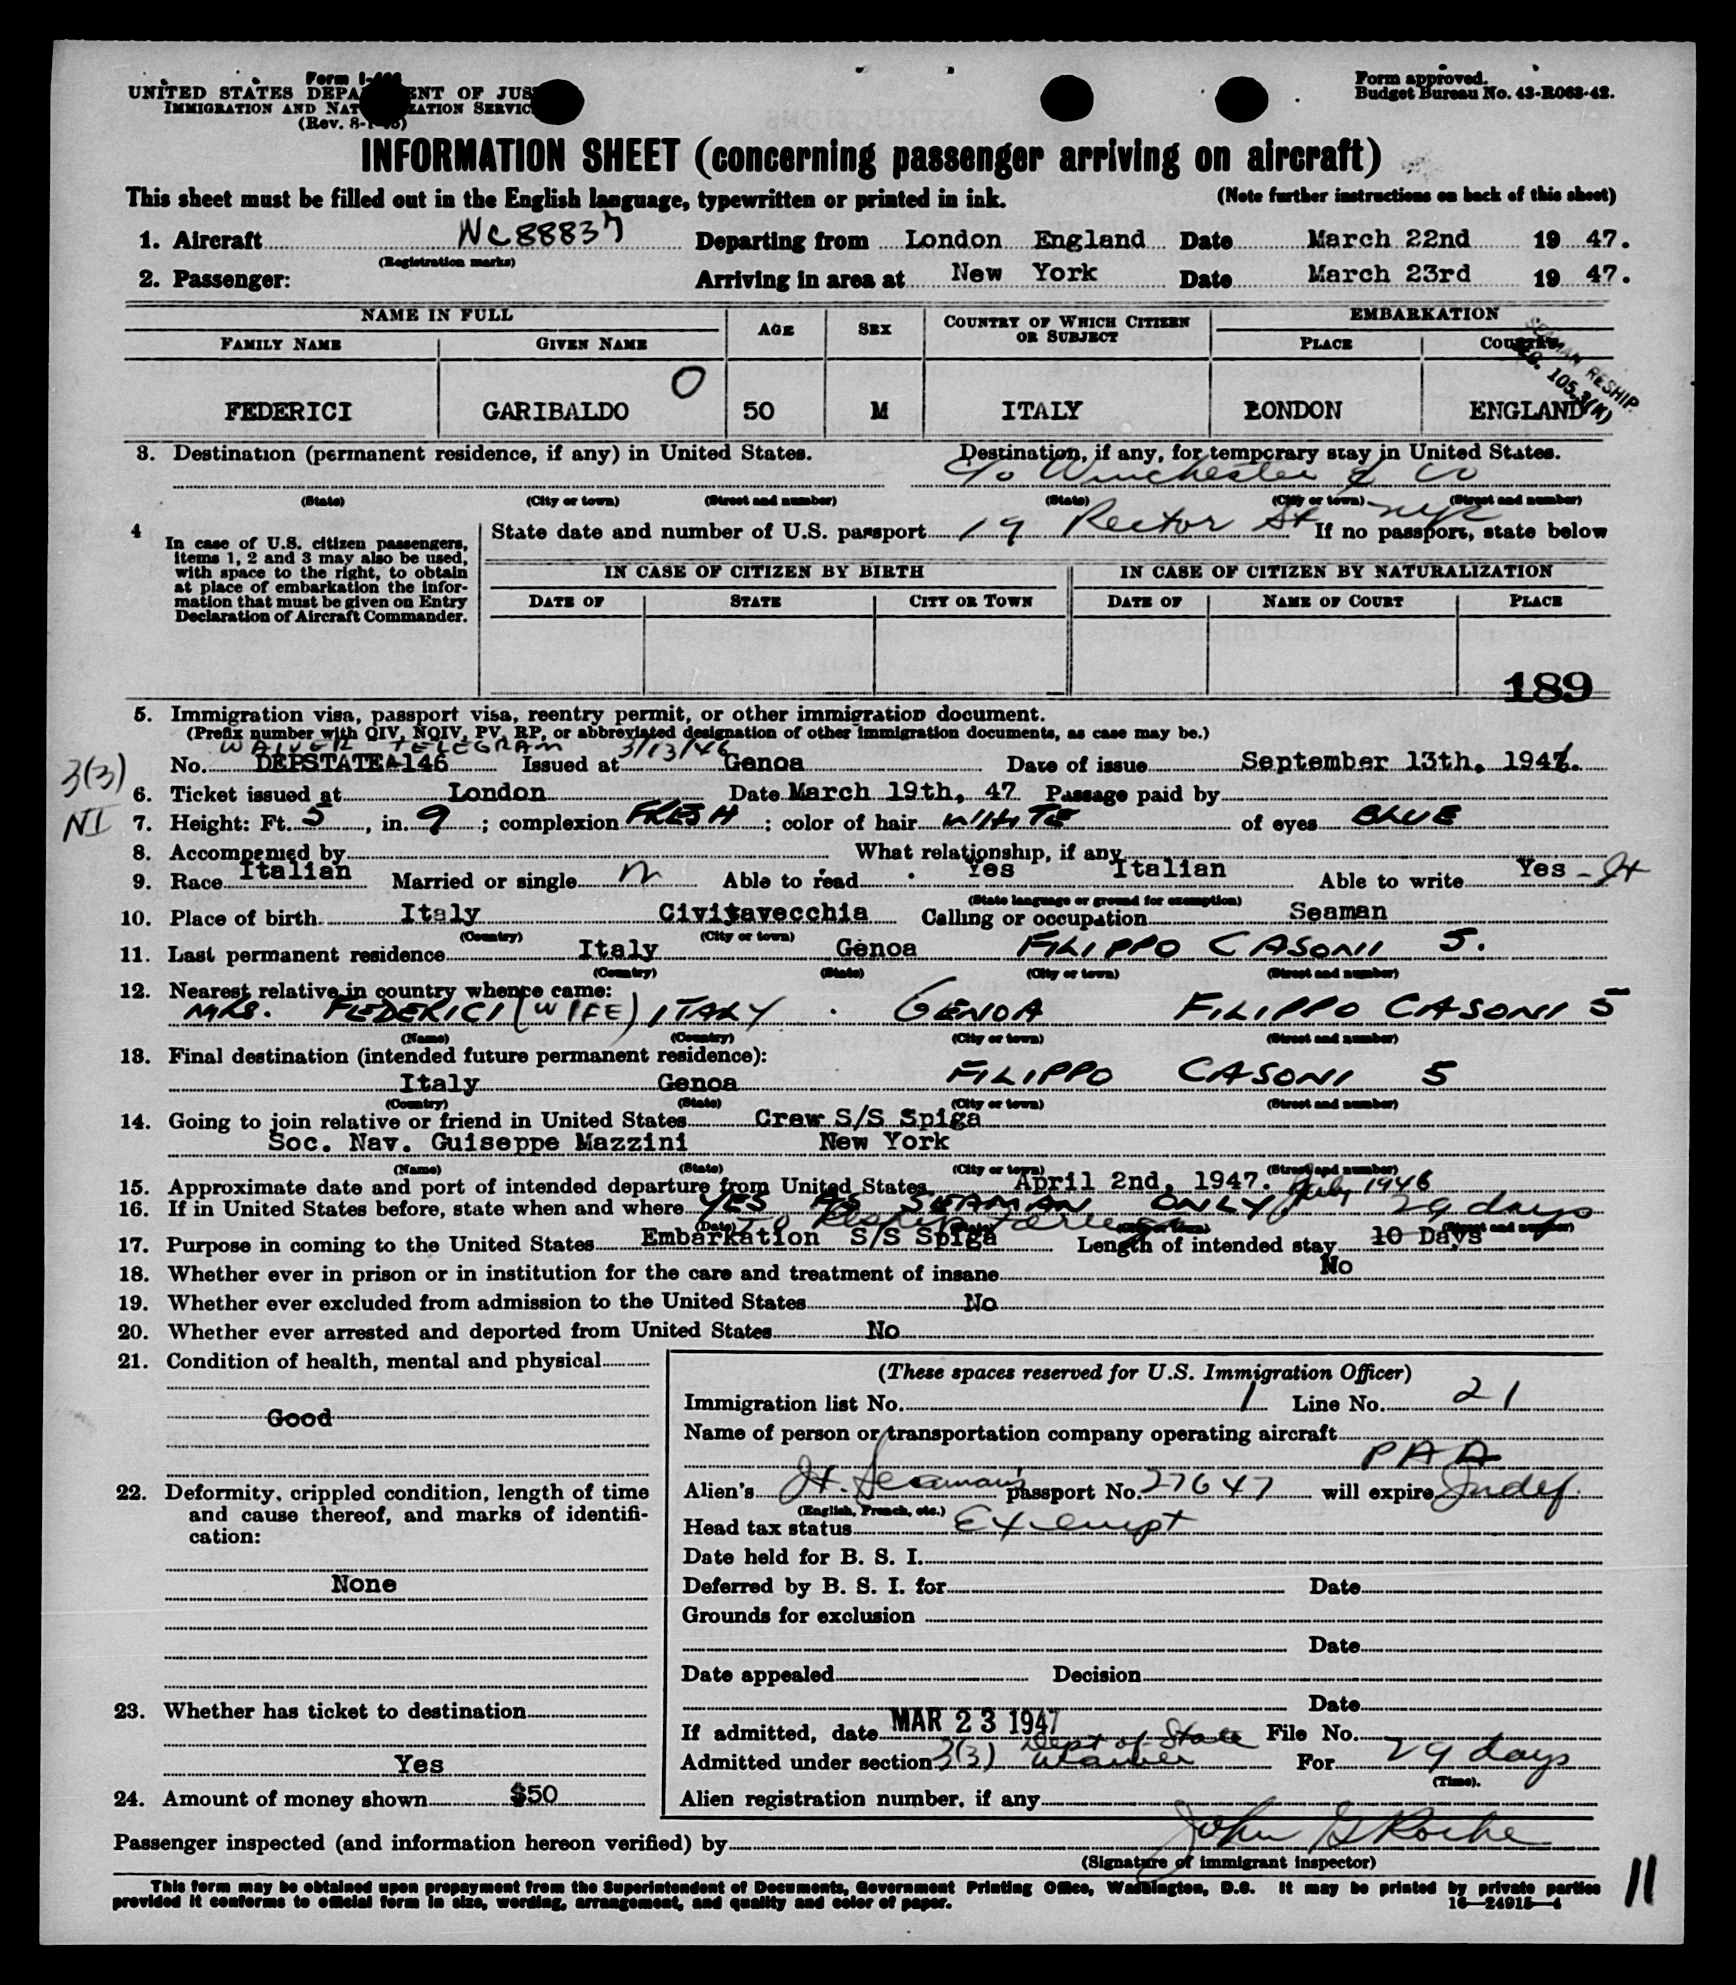 Form I-466
UNITED STATES DEPARTMENT OF JUSTICE
IMMIGRATION AND NATURALIZATION SERVICE
(Rev. 8-1-45)
Form approved.
Budget Bureau No. 43-R063-42.
INFORMATION SHEET (concerning passenger arriving on aircraft)
This sheet must be filled out in the English language, typewritten or printed in ink. (Note further instructions on back of this sheet)
1. Aircraft NC88837 Departing from London England Date March 22nd 19 47.
(Registration marks)
2. Passenger: Arriving in area at New York Date March 23rd 19 47.
NAME IN FULL AGE SEX COUNTRY OF WHICH CITIZEN OR SUBJECT EMBARKATION
FAMILY NAME GIVEN NAME PLACE COUNTRY
SEAMAN RESHIP.
SEC. 105.3(K)
O
FEDERICI GARIBALDO 50 M ITALY LONDON ENGLAND
3. Destination (permanent residence, if any) in United States. Destination, if any, for temporary stay in United States.
c/o Winchester & Co
(State) (City or town) (Street and number) (State) (City or town) (Street and number)
4 In case of U.S. citizen passengers, items 1, 2 and 3 may also be used, with space to the right, to obtain at place of embarkation the information that must be given on Entry Declaration of Aircraft Commander.
State date and number of U.S. passport 19 Rector St NYC If no passport, state below
IN CASE OF CITIZEN BY BIRTH IN CASE OF CITIZEN BY NATURALIZATION
DATE OF STATE CITY OR TOWN DATE OF NAME OF COURT PLACE
189
5. Immigration visa, passport visa, reentry permit, or other immigration document.
(Prefix number with QIV, NQIV, PV, RP, or abbreviated designation of other immigration documents, as case may be.)
WAIVER TELEGRAM 3/13/46
No. DEPSTATEA146 Issued at Genoa Date of issue September 13th, 1946.
3(3)
NI
6. Ticket issued at London Date March 19th, 47 Passage paid by
7. Height: Ft. 5, in. 9; complexion FRESH; color of hair WHITE of eyes BLUE
8. Accompanied by What relationship, if any
9. Race Italian Married or single M Able to read Yes Italian Able to write Yes - It
(State language or ground for exemption)
10. Place of birth Italy Civitavecchia Calling or occupation Seaman
(Country) (City or town)
11. Last permanent residence Italy Genoa FILIPPO CASONI 5.
(Country) (State) (City or town) (Street and number)
12. Nearest relative in country whence came:
MRS. FEDERICI (WIFE) ITALY GENOA FILIPPO CASONI 5
(Name) (Country) (City or town) (Street and number)
13. Final destination (intended future permanent residence):
Italy Genoa FILIPPO CASONI 5
(Country) (State) (City or town) (Street and number)
14. Going to join relative or friend in United States Crew S/S Spiga
Soc. Nav. Guiseppe Mazzini New York
(Name) (State) (City or town) (Street and number)
15. Approximate date and port of intended departure from United States April 2nd, 1947.
16. If in United States before, state when and where YES AS SEAMAN ONLY July 1946
(Date) (State) (City or town) (Street and number)
To Reship Foreign 29 days
17. Purpose in coming to the United States Embarkation S/S Spiga Length of intended stay 10 Days
18. Whether ever in prison or in institution for the care and treatment of insane No
19. Whether ever excluded from admission to the United States No
20. Whether ever arrested and deported from United States No
21. Condition of health, mental and physical
Good
22. Deformity, crippled condition, length of time and cause thereof, and marks of identification:
None
23. Whether has ticket to destination
Yes
24. Amount of money shown $50
(These spaces reserved for U.S. Immigration Officer)
Immigration list No. 1 Line No. 21
Name of person or transportation company operating aircraft
PAA
Alien's It. Seaman's passport No. 27647 will expire Indef.
(English, French, etc.)
Head tax status Exempt
Date held for B. S. I.
Deferred by B. S. I. for Date
Grounds for exclusion
Date
Date appealed Decision
Date
If admitted, date MAR 23 1947 File No.
Dept of State
Admitted under section 3(3) Waiver For 29 days
(Time).
Alien registration number, if any
Passenger inspected (and information hereon verified) by John G Roche
(Signature of immigrant inspector)
This form may be obtained upon prepayment from the Superintendent of Documents, Government Printing Office, Washington, D.C. It may be printed by private parties
provided it conforms to official form in size, wording, arrangement, and quality and color of paper. 16—24915-4
11